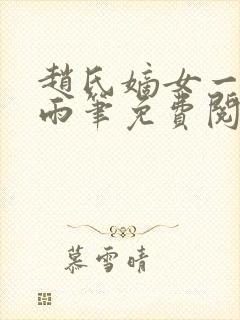 趙氏嫡女一
兩筆免費閱
慕雪晴